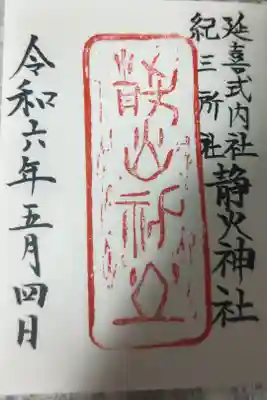 延喜式内社
紀三所社
静火神社
静火神社
令和六年五月四日